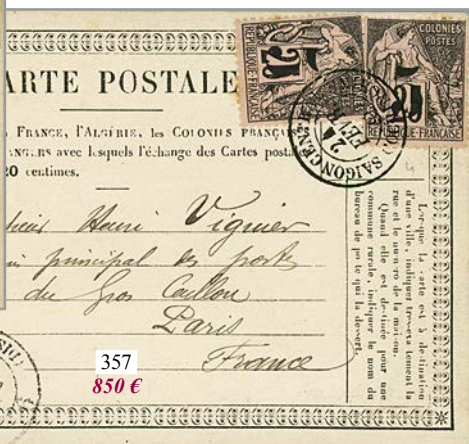 ARTE POSTALE
FRANCE, l'ALGÉRIE, les COLONIES FRANÇAISES
avec lesquels l'échange des Cartes postales
20 centimes.
COLONIES
POSTES
RÉPUBLIQUE FRANÇAISE
5
COLONIES
POSTES
RÉPUBLIQUE FRANÇAISE
SAIGON CENTRAL
Henri Vignier
principal des postes
du Gros Caillou
Paris
France
Lorsque la carte est à destination
d'une ville, indiquer très-exactement la
rue et le numéro de la maison.
Quand elle est destinée pour une
commune rurale, indiquer le nom du
bureau de poste qui la dessert.
357
850 €